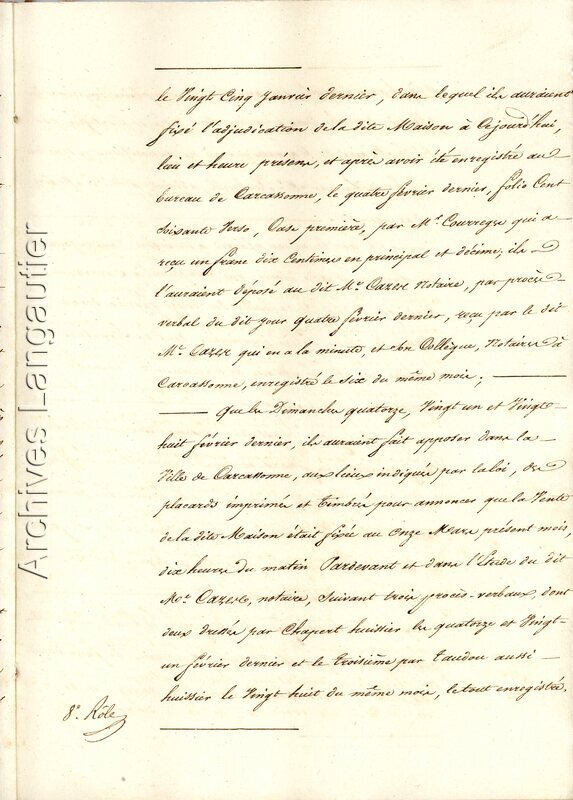 le Vingt Cinq Janvier dernier, dans lequel ils auraient
fixé l'adjudication de la dite Maison à Cejourd'hui,
lieu et heure présens, et après avoir été enregistré au
bureau de Carcassonne, le quatre février dernier, folio Cent
soixante Verso, Case première, par Mr. Courrege qui a
reçu un franc dix Centimes en principal et décime, ils
l'auraient déposé au dit Me. Cazes Notaire, par procès
verbal du dit jour quatre février dernier, reçu par le dit
Me. Cazes qui en a la minute, et son Collègue, Notaires à
Carcassonne, enregistré le six du même mois;
Que les Dimanches quatorze, Vingt un et Vingt-
huit février dernier, ils auraient fait apposer dans la
Ville de Carcassonne, aux lieux indiqués par la loi, des
placards imprimés et timbrés pour annoncer que la Vente
de la dite Maison était fixée au onze Mars présent mois,
dix heures du matin Pardevant et dans l'Etude du dit
Me. Cazes, notaire, Suivant trois procès-verbaux, dont
deux dressés par Chapert huissier les quatorze et Vingt-
un février dernier et le troisième par Taudou aussi
huissier le Vingt huit du même mois, le tout enregistré.
8e. Rôle
Archives Langautier